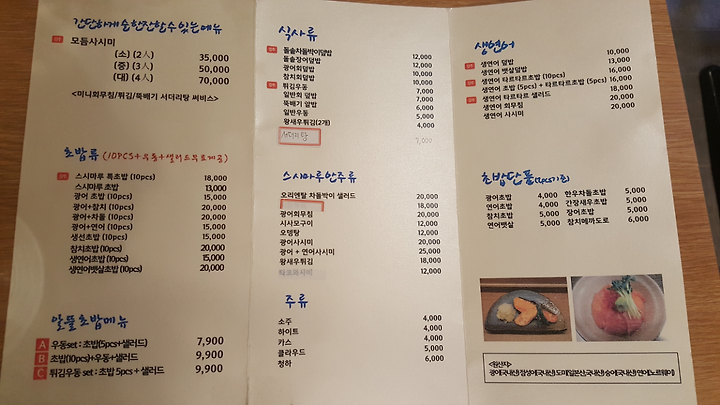 간단하게 술한잔할수있는메뉴
모듬사시미
(소) (2人) 35,000
(중) (3人) 50,000
(대) (4人) 70,000
<미니회무침/튀김/뚝배기 서더리탕 써비스>
초밥류 (10PCS+우동+샐러드무료제공)
스시마루 특초밥 (10pcs) 18,000
스시마루 초밥 13,000
광어 초밥 (10pcs) 15,000
광어+참치 (10pcs) 20,000
광어+차돌 (10pcs) 20,000
광어+연어 (10pcs) 15,000
생선초밥 (10pcs) 15,000
참치초밥 (10pcs) 20,000
생연어초밥 (10pcs) 15,000
생연어뱃살초밥 (10pcs) 20,000
알뜰초밥메뉴
A 우동set : 초밥(5pcs+샐러드) 7,900
B 초밥(10pcs)+우동+샐러드 9,900
C 튀김우동 set : 초밥 5pcs + 샐러드 9,900
식사류
돌솥차돌박이덮밥 12,000
돌솥장어덮밥 12,000
광어회덮밥 10,000
참치회덮밥 10,000
튀김우동 7,000
일반회 덮밥 7,000
뚝배기 알밥 6,000
일반우동 5,000
왕새우튀김(2개) 4,000
서더리탕
스시마루안주류
오리엔탈 차돌박이 샐러드 20,000
18,000
광어회무침 20,000
시사모구이 12,000
오뎅탕 12,000
광어사시미 20,000
광어 + 연어사시미 25,000
왕새우튀김 18,000
타코와사비 12,000
주류
소주 4,000
하이트 4,000
카스 4,000
클라우드 5,000
청하 6,000
생연어
생연어 덮밥 10,000
생연어 뱃살덮밥 13,000
생연어 타르타르초밥 (10pcs) 16,000
생연어 초밥 (5pcs) + 타르타르초밥 (5pcs) 16,000
생연어 타르타르 샐러드 18,000
생연어 회무침 20,000
생연어 사시미 20,000
초밥단품(2pcs기준)
광어초밥 4,000 한우차돌초밥 5,000
연어초밥 4,000 간장새우초밥 5,000
참치초밥 5,000 장어초밥 5,000
연어뱃살 5,000 참치메까도로 6,000
<원산지>
광어(국내산) 점성어(국내산) 도미(일본산,국내산) 숭어(국내산) 연어(노르웨이)